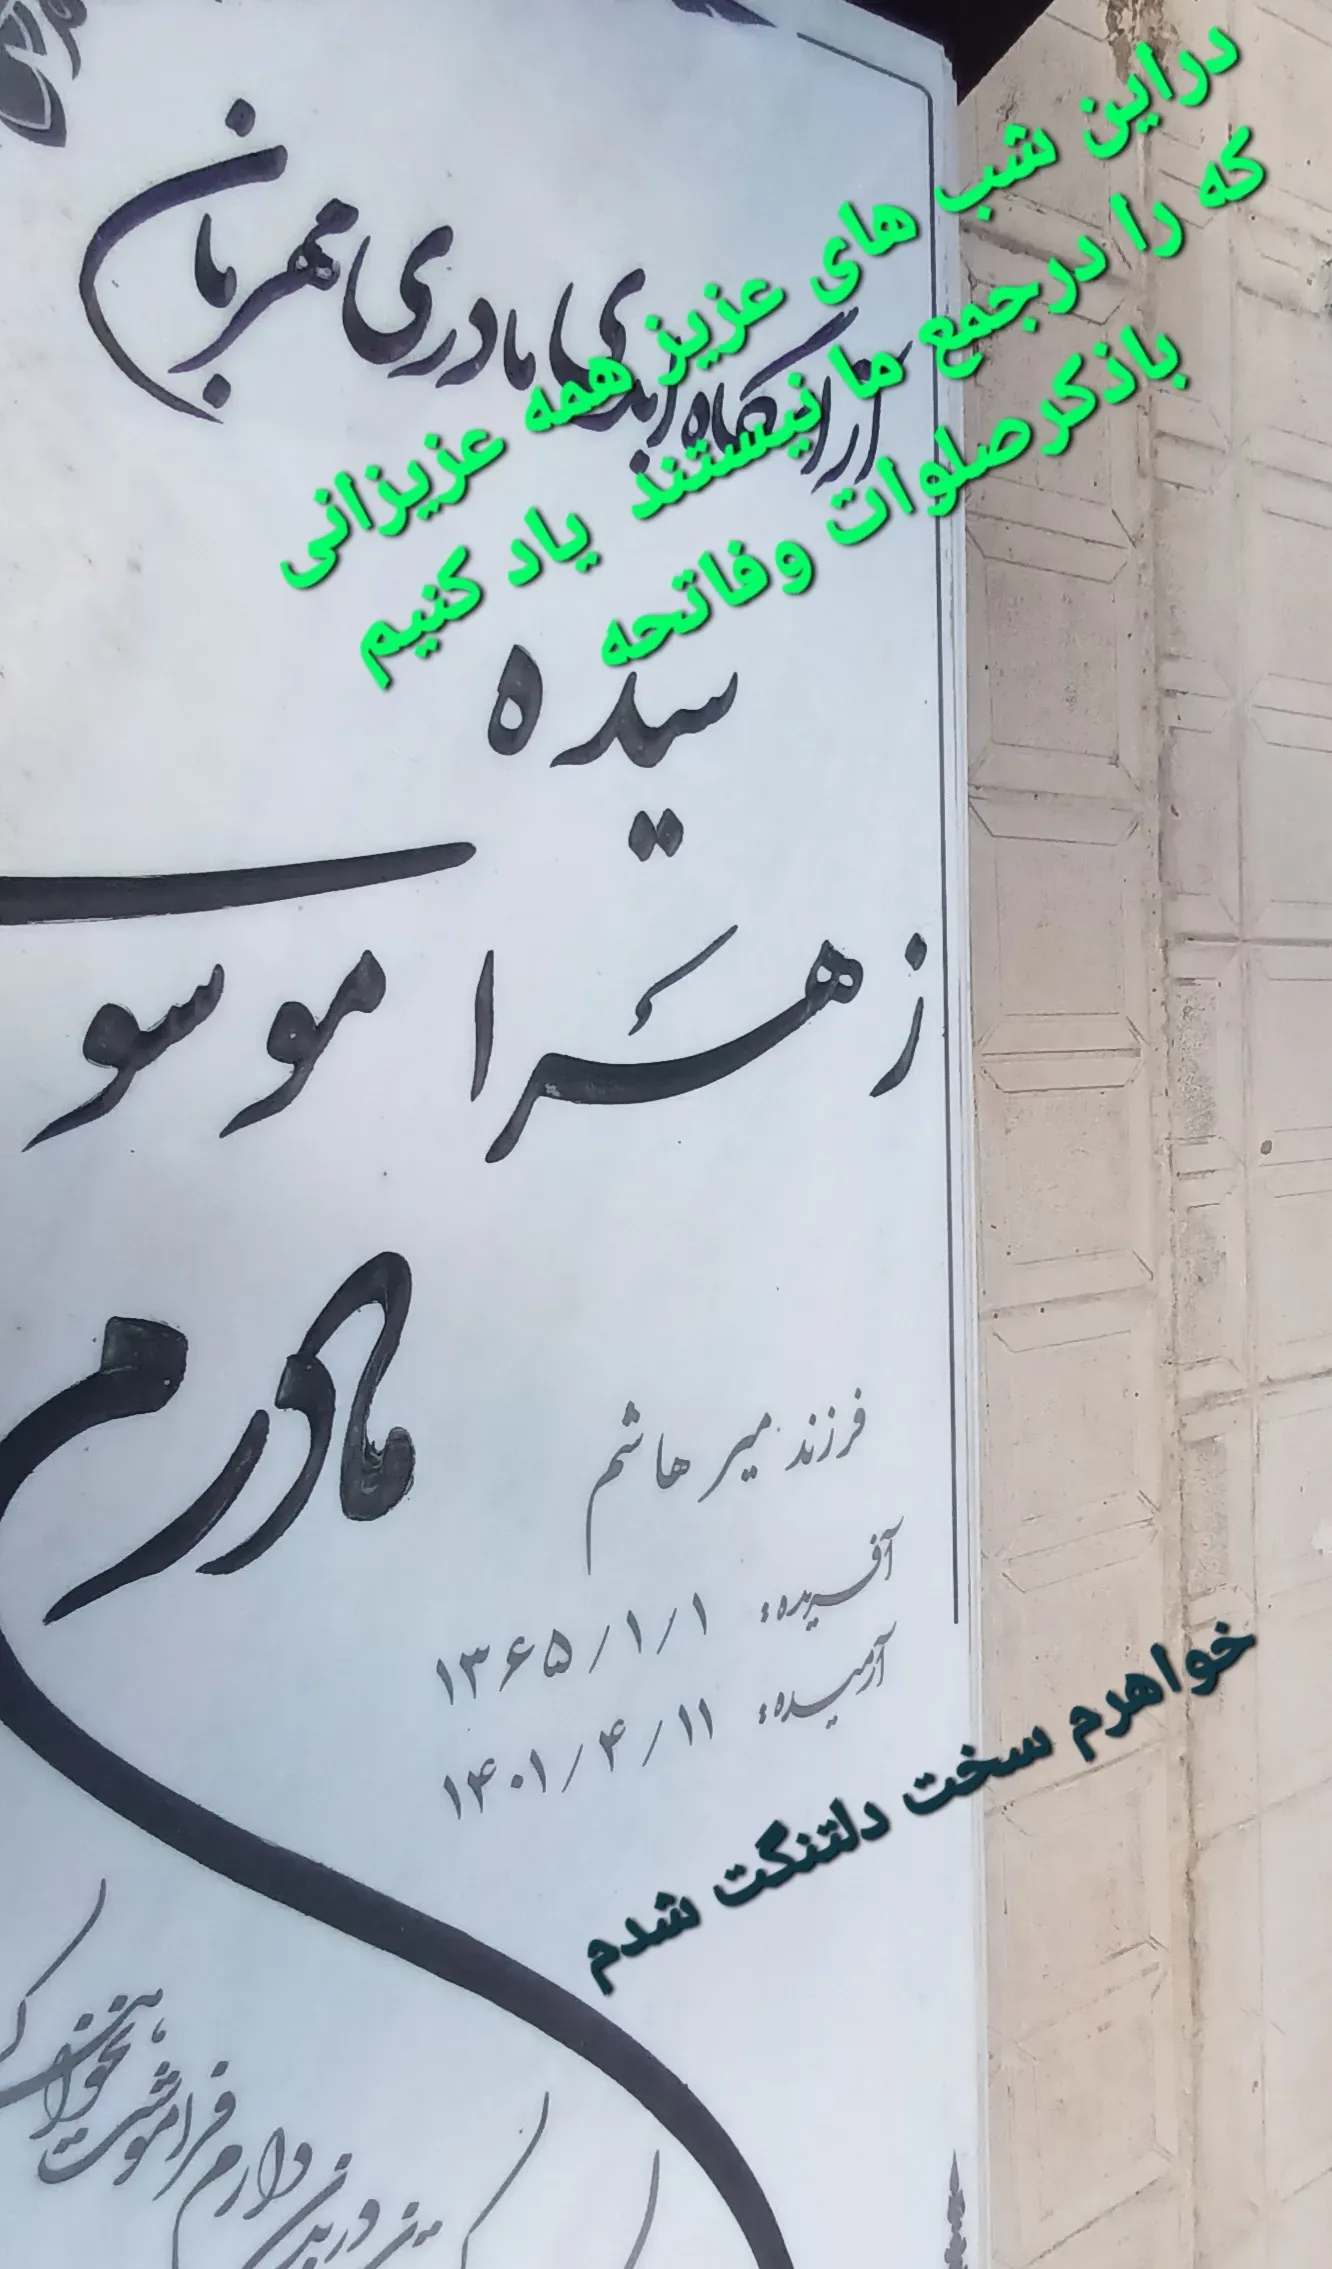 دراین شب های عزیز همه عزیزانی
که را درجمع ما نیستند یاد کنیم
باذکرصلوات وفاتحه
آرامگاه ابدی مادری مهربان
سیده
زهرا موسو
مادرم
فرزند میر هاشم
آفریده: ۱۳۶۵/۱/۱
آرمیده: ۱۴۰۱/۴/۱۱
خواهرم سخت دلتنگت شدم
دارم فراموشت نخواهم